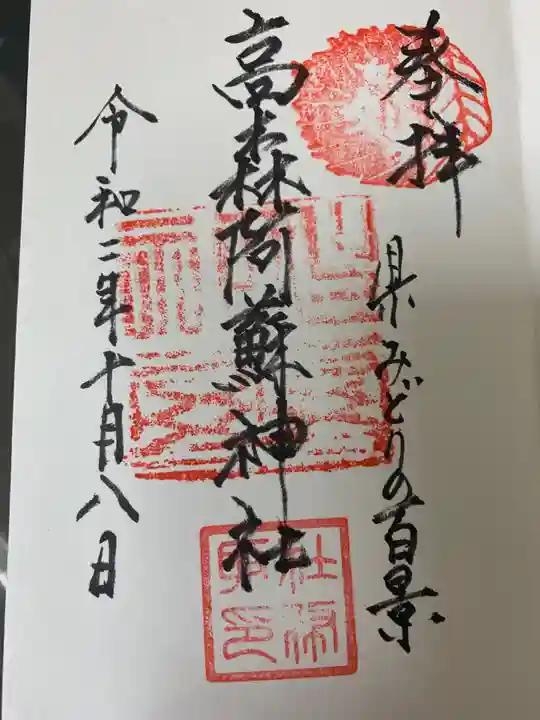 奉拝
県みどりの百景
高森阿蘇神社
令和二年十月八日
社務所印